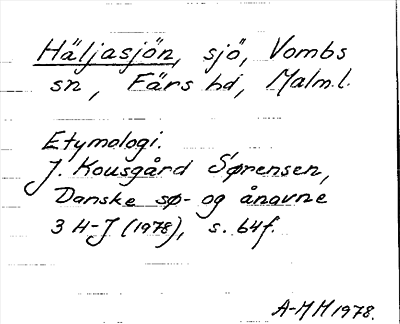 Häljasjön, sjö, Vombs
sn, Färs hd, Malm.l.
Etymologi.
J. Kousgård Sørensen,
Danske sø- og ånavne
3 H-J (1978), s. 64f.
A-MM 1978.